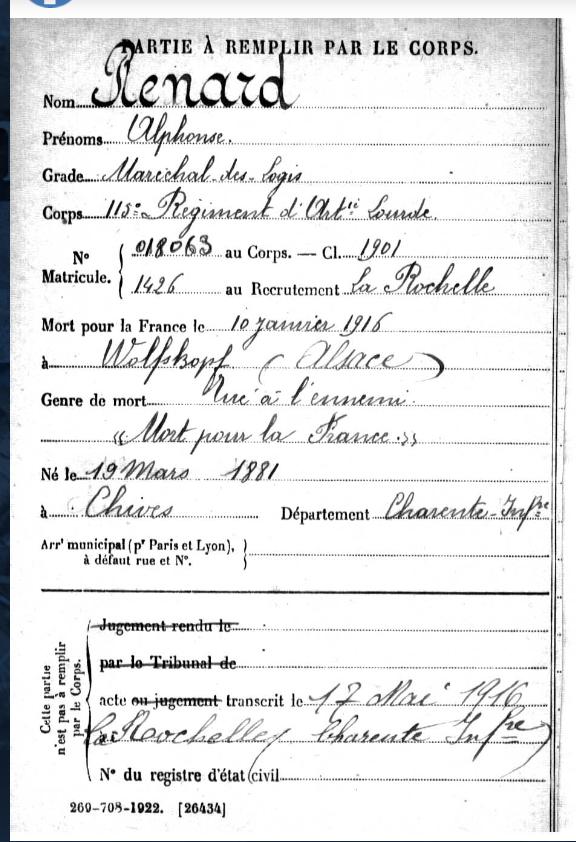 PARTIE À REMPLIR PAR LE CORPS.
Nom Renard
Prénoms Alphonse.
Grade Maréchal-des-Logis
Corps 115e Régiment d'Artie Lourde.
N° Matricule. { 018063 au Corps. — Cl. 1901
1426 au Recrutement La Rochelle
Mort pour la France le 10 janvier 1916
à Wolfskopf (Alsace)
Genre de mort Tué à l'ennemi.
« Mort pour la France. »
Né le 19 Mars 1881
à Chives Département Charente-Infre
Arrt municipal (pr Paris et Lyon), }
à défaut rue et N°.
Cette partie n'est pas à remplir par le Corps.
Jugement rendu le
par le Tribunal de
acte ou jugement transcrit le 17 Mai 1916
à La Rochelle (Charente Infre)
N° du registre d'état civil
269-708-1922. [26434]